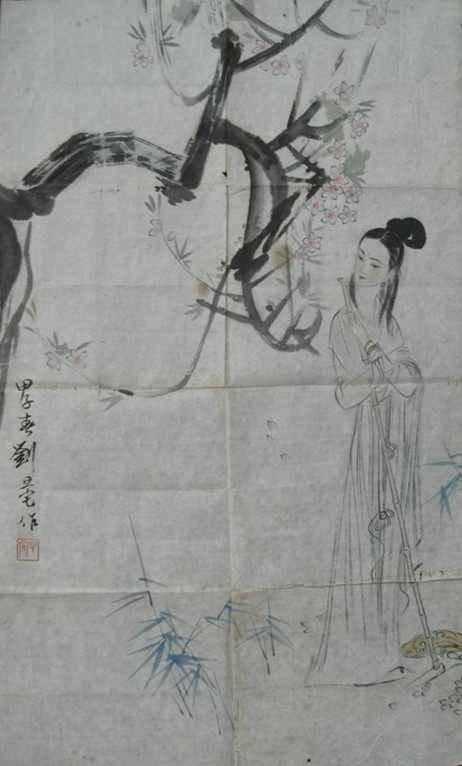 甲子春劉旦宅作